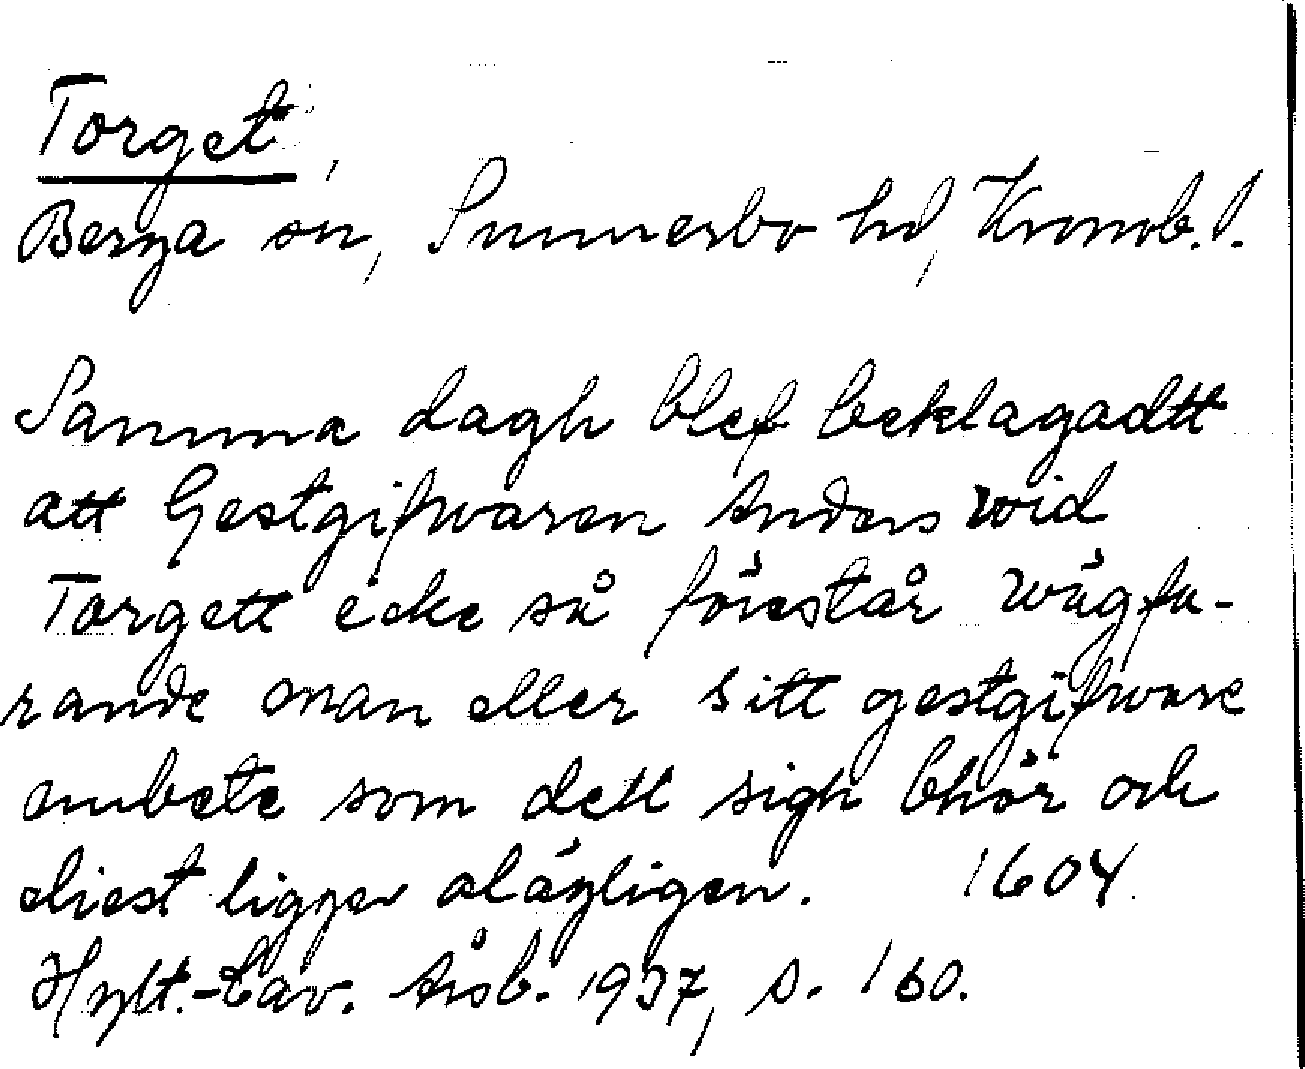 Torget,
Berga sn, Sunnerbo hd, Kronob. l.
Samma dagh blef beklagadtt
att Gestgifwaren Anders wid
Torgett icke så förestår wägfa-
rande man eller sitt gestgifware
ambete som dett sigh bhör och
eliest ligger alägligen. 1604.
Hylt.-Cav. Årsb. 1937, s. 160.